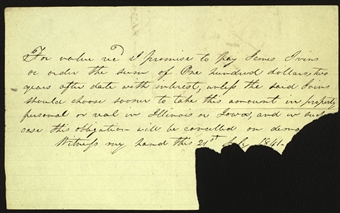 For value rec'd I promise to pay James Ivins
or order the sum of One hundred dollars, two
years after date with interest, unless the said Ivins
should choose sooner to take this amount in property
personal or real in Illinois or Iowa, and in such
case this obligation will be cancelled on
Witness my hand this 21st July 1841.